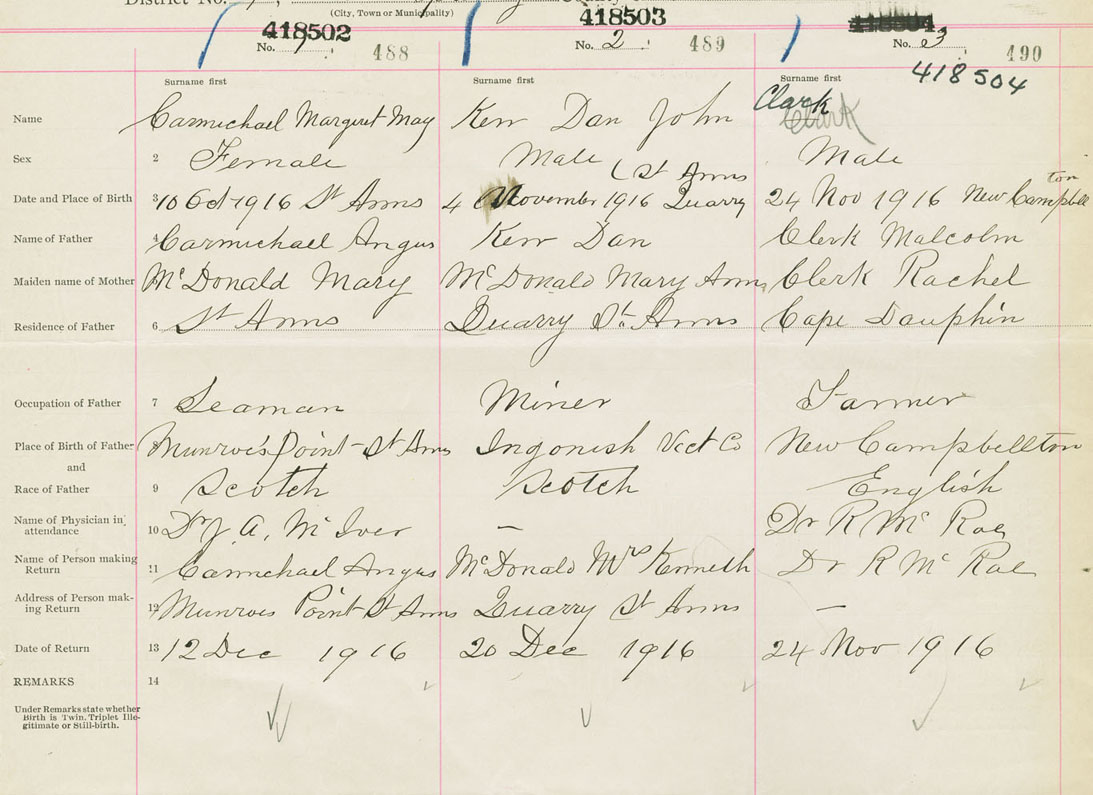 District No.
(City, Town or Municipality)
418502 418503
No. 1 488 No. 2 489 No. 3 490
418504
Surname first Surname first Surname first
Clark
Name Carmichael Margaret May Kerr Dan John Clark
Sex 2 Female Male Male
(St Anns ton
Date and Place of Birth 3 10 Oct 1916 St Anns 4 November 1916 Quarry 24 Nov 1916 New Campbell
Name of Father 4 Carmichael Angus Kerr Dan Clerk Malcolm
Maiden name of Mother McDonald Mary McDonald Mary Ann Clerk Rachel
Residence of Father 6 St Anns Quarry St. Anns Cape Dauphin
Occupation of Father 7 Seaman Miner Farmer
Place of Birth of Father 8 Munroe's Point St Anns Ingonish Vict Co New Campbellton
and
Race of Father 9 Scotch Scotch English
Name of Physician in attendance 10 Dr J. A. McIver — Dr R McRae
Name of Person making Return 11 Carmichael Angus McDonald Mrs Kenneth Dr R McRae
Address of Person mak-
ing Return 12 Munroes Point St Anns Quarry St Anns —
Date of Return 13 12 Dec 1916 20 Dec 1916 24 Nov 1916
REMARKS 14
Under Remarks state whether
Birth is Twin. Triplet Ille-
gitimate or Still-birth.